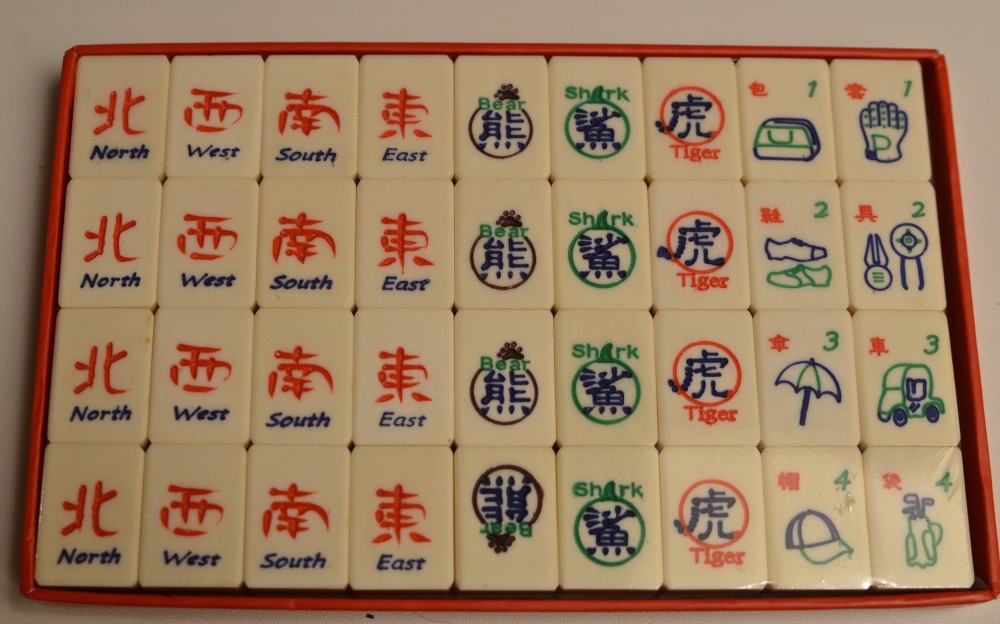 北
North
西
West
南
South
東
East
Bear
熊
Shark
鯊
虎
Tiger
包 1
套 1
P
北
North
西
West
南
South
東
East
Bear
熊
Shark
鯊
虎
Tiger
鞋 2
具 2
北
North
西
West
南
South
東
East
Bear
熊
Shark
鯊
虎
Tiger
傘 3
車 3
北
North
西
West
南
South
東
East
Bear
熊
Shark
鯊
虎
Tiger
帽 4
袋 4